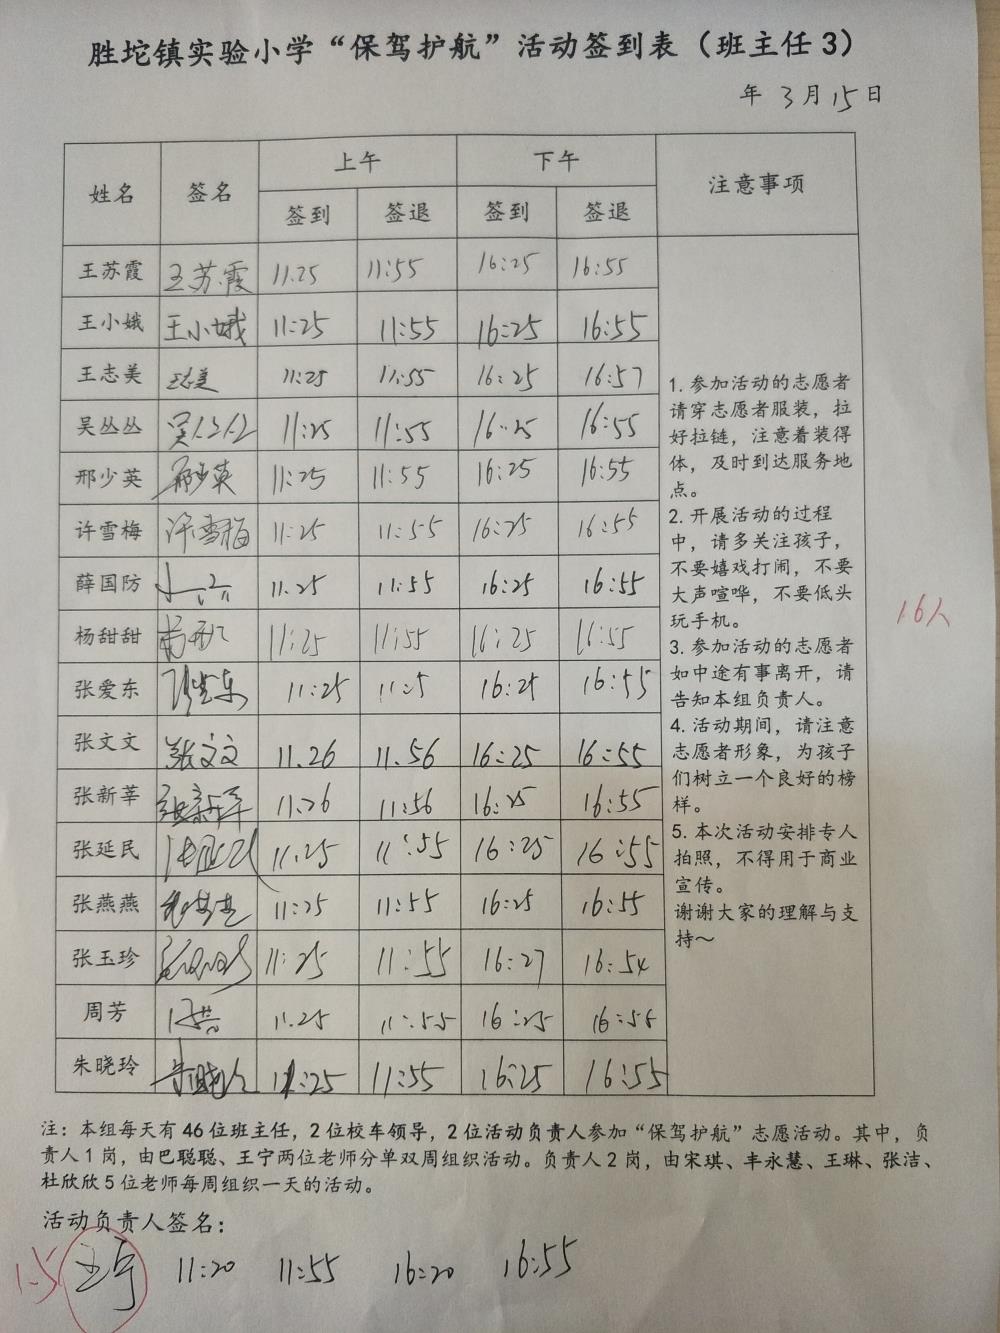 胜坨镇实验小学“保驾护航”活动签到表（班主任3）
年 3月15日
姓名 签名 上午 下午 注意事项
签到 签退 签到 签退
王苏霞 王苏霞 11.25 11:55 16:25 16:55
王小娥 王小娥 11:25 11:55 16:25 16:55
王志美 王志美 11:25 11:55 16:25 16:57
吴丛丛 吴丛丛 11:25 11:55 16:25 16:55
邢少英 邢少英 11:25 11:55 16:25 16:55
许雪梅 许雪梅 11:25 11:55 16:25 16:55
薛国防 11.25 11:55 16:25 16:55
杨甜甜 11:25 11:55 16:25 16:55
张爱东 张爱东 11:25 11:5 16:25 16:55
张文文 张文文 11.26 11.56 16:25 16:55
张新莘 张新莘 11.26 11:56 16:25 16:55
张延民 张延民 11.25 11:55 16:25 16:55
张燕燕 11:25 11:55 16:25 16:55
张玉珍 11:25 11:55 16:27 16:54
周芳 周芳 11.25 11:55 16:25 16:55
朱晓玲 朱晓玲 11:25 11:55 16:25 16:55
1. 参加活动的志愿者
请穿志愿者服装，拉
好拉链，注意着装得
体，及时到达服务地
点。
2. 开展活动的过程
中，请多关注孩子，
不要嬉戏打闹，不要
大声喧哗，不要低头
玩手机。
3. 参加活动的志愿者
如中途有事离开，请
告知本组负责人。
4. 活动期间，请注意
志愿者形象，为孩子
们树立一个良好的榜
样。
5. 本次活动安排专人
拍照，不得用于商业
宣传。
谢谢大家的理解与支
持～
16人
注：本组每天有46位班主任，2位校车领导，2位活动负责人参加“保驾护航”志愿活动。其中，负
责人1岗，由巴聪聪、王宁两位老师分单双周组织活动。负责人2岗，由宋琪、丰永慧、王琳、张洁、
杜欣欣5位老师每周组织一天的活动。
活动负责人签名：
1.5 王宁 11:20 11:55 16:20 16:55